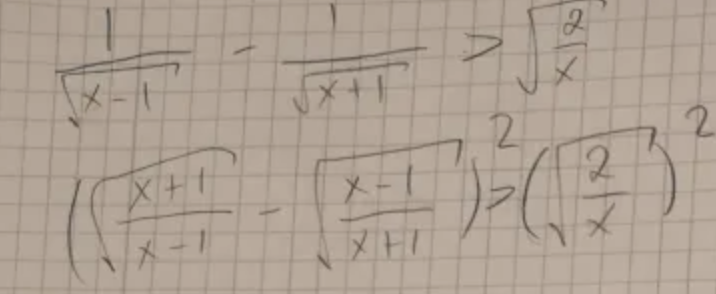 1/√(x-1) - 1/√(x+1) > √(2/x)
(√((x+1)/(x-1)) - √((x-1)/(x+1)))² > (√(2/x))²